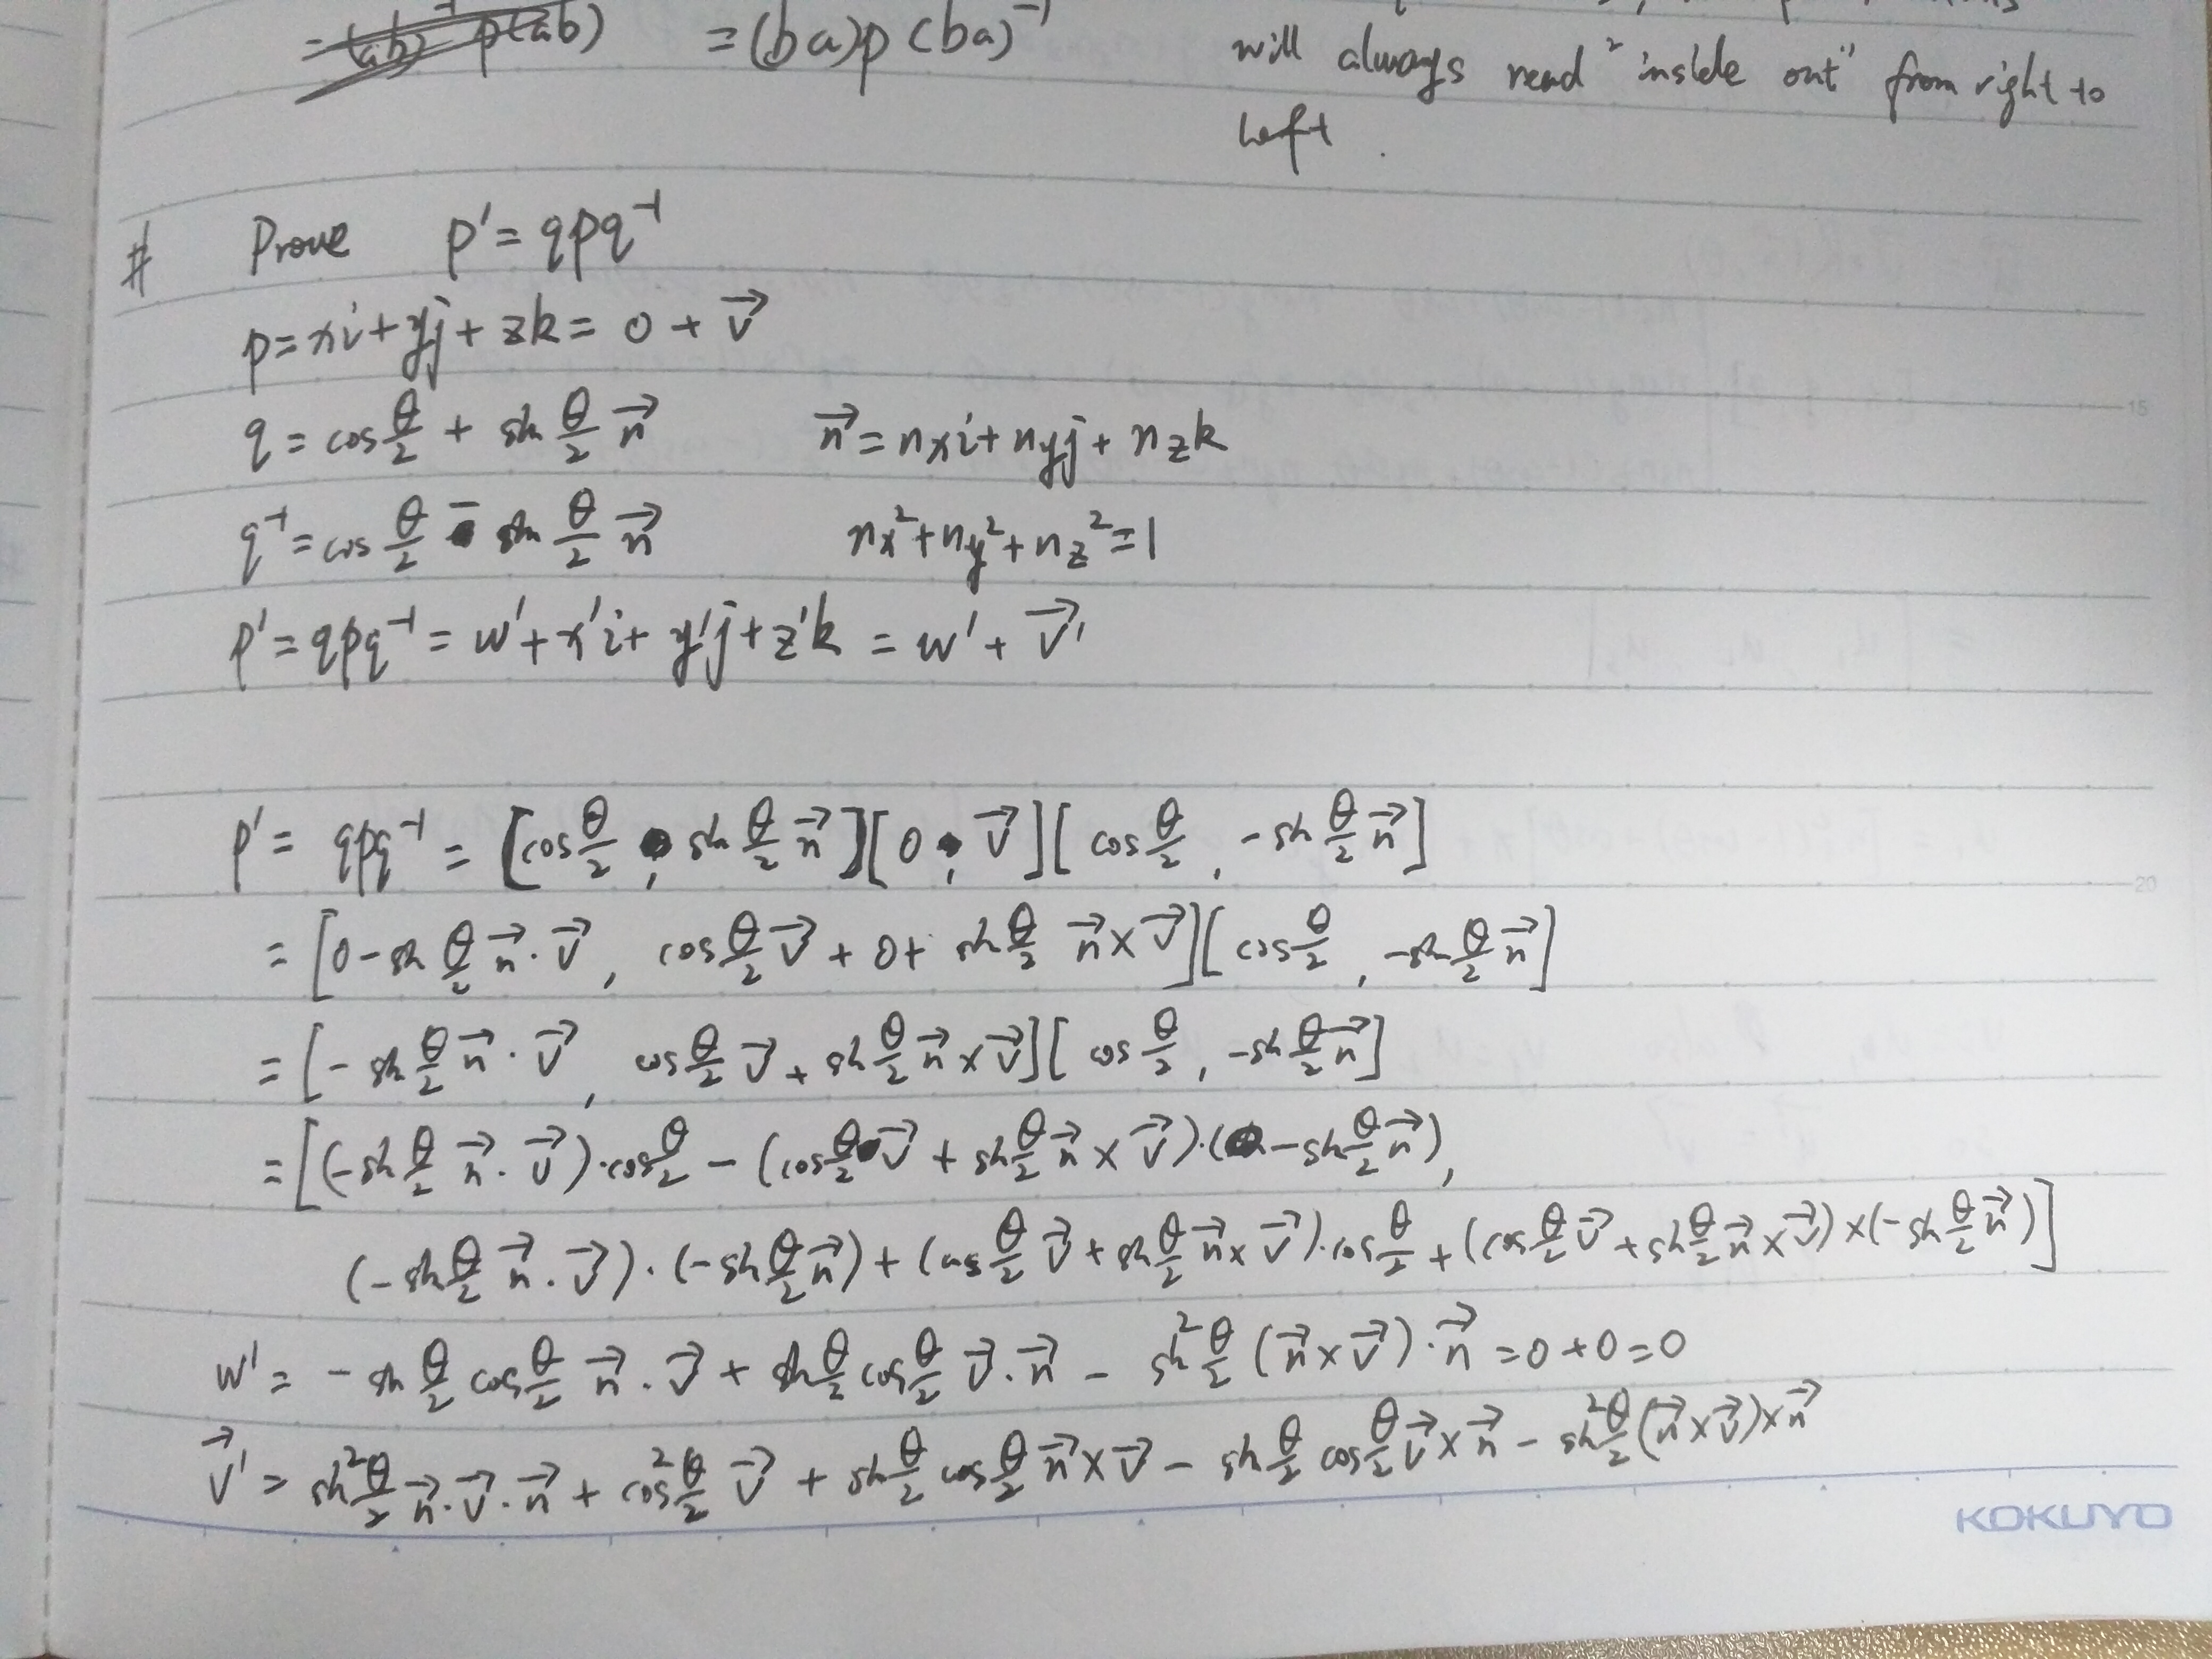 = (ab)⁻¹ p(ab) = (ba)p(ba)⁻¹
will always read "inside out" from right to
left.
# Prove p' = qpq⁻¹
p = xi + yj + zk = 0 + v⃗
q = cos θ/2 + sin θ/2 n⃗ n⃗ = nxi + nyj + nzk
q⁻¹ = cos θ/2 - sin θ/2 n⃗ nx² + ny² + nz² = 1
p' = qpq⁻¹ = w' + x'i + y'j + z'k = w' + v⃗'
p' = qpq⁻¹ = [cos θ/2, sin θ/2 n⃗][0, v⃗][cos θ/2, -sin θ/2 n⃗]
= [0 - sin θ/2 n⃗·v⃗, cos θ/2 v⃗ + 0 + sin θ/2 n⃗×v⃗][cos θ/2, -sin θ/2 n⃗]
= [-sin θ/2 n⃗·v⃗, cos θ/2 v⃗ + sin θ/2 n⃗×v⃗][cos θ/2, -sin θ/2 n⃗]
= [(-sin θ/2 n⃗·v⃗)·cos θ/2 - (cos θ/2 v⃗ + sin θ/2 n⃗×v⃗)·(-sin θ/2 n⃗),
(-sin θ/2 n⃗·v⃗)·(-sin θ/2 n⃗) + (cos θ/2 v⃗ + sin θ/2 n⃗×v⃗)·cos θ/2 + (cos θ/2 v⃗ + sin θ/2 n⃗×v⃗)×(-sin θ/2 n⃗)]
w' = -sin θ/2 cos θ/2 n⃗·v⃗ + sin θ/2 cos θ/2 v⃗·n⃗ - sin² θ/2 (n⃗×v⃗)·n⃗ = 0 + 0 = 0
v⃗' = sin² θ/2 n⃗·v⃗·n⃗ + cos² θ/2 v⃗ + sin θ/2 cos θ/2 n⃗×v⃗ - sin θ/2 cos θ/2 v⃗×n⃗ - sin² θ/2 (n⃗×v⃗)×n⃗
15
20
KOKUYO